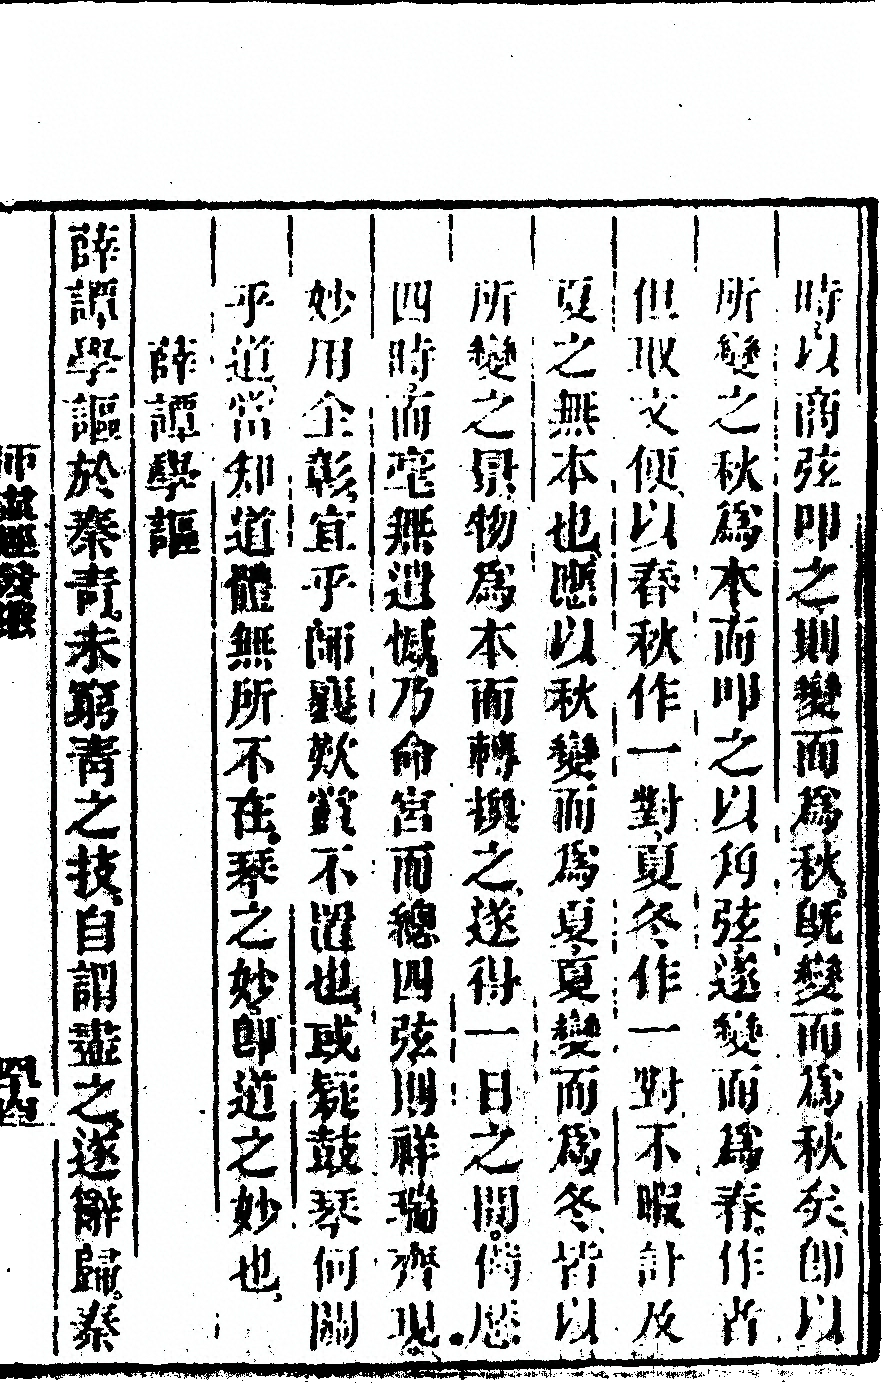 時以商弦叩之則變而爲秋既變而爲秋矣卽以
所變之秋爲本而叩之以角弦遂變而爲春作者
但取文便以春秋作一對夏冬作一對不暇計及
夏之無本也應以秋變而爲夏夏變而爲冬皆以
所變之景物爲本而轉換之遂得一日之間備歷
四時而毫無遺憾乃命宮而總四弦則祥瑞齊現
妙用全彰宜乎師襄歎賞不置也或疑鼓琴何關
乎道當知道體無所不在琴之妙卽道之妙也
薛譚學謳
薛譚學謳於秦青未窮青之技自謂盡之遂辭歸秦